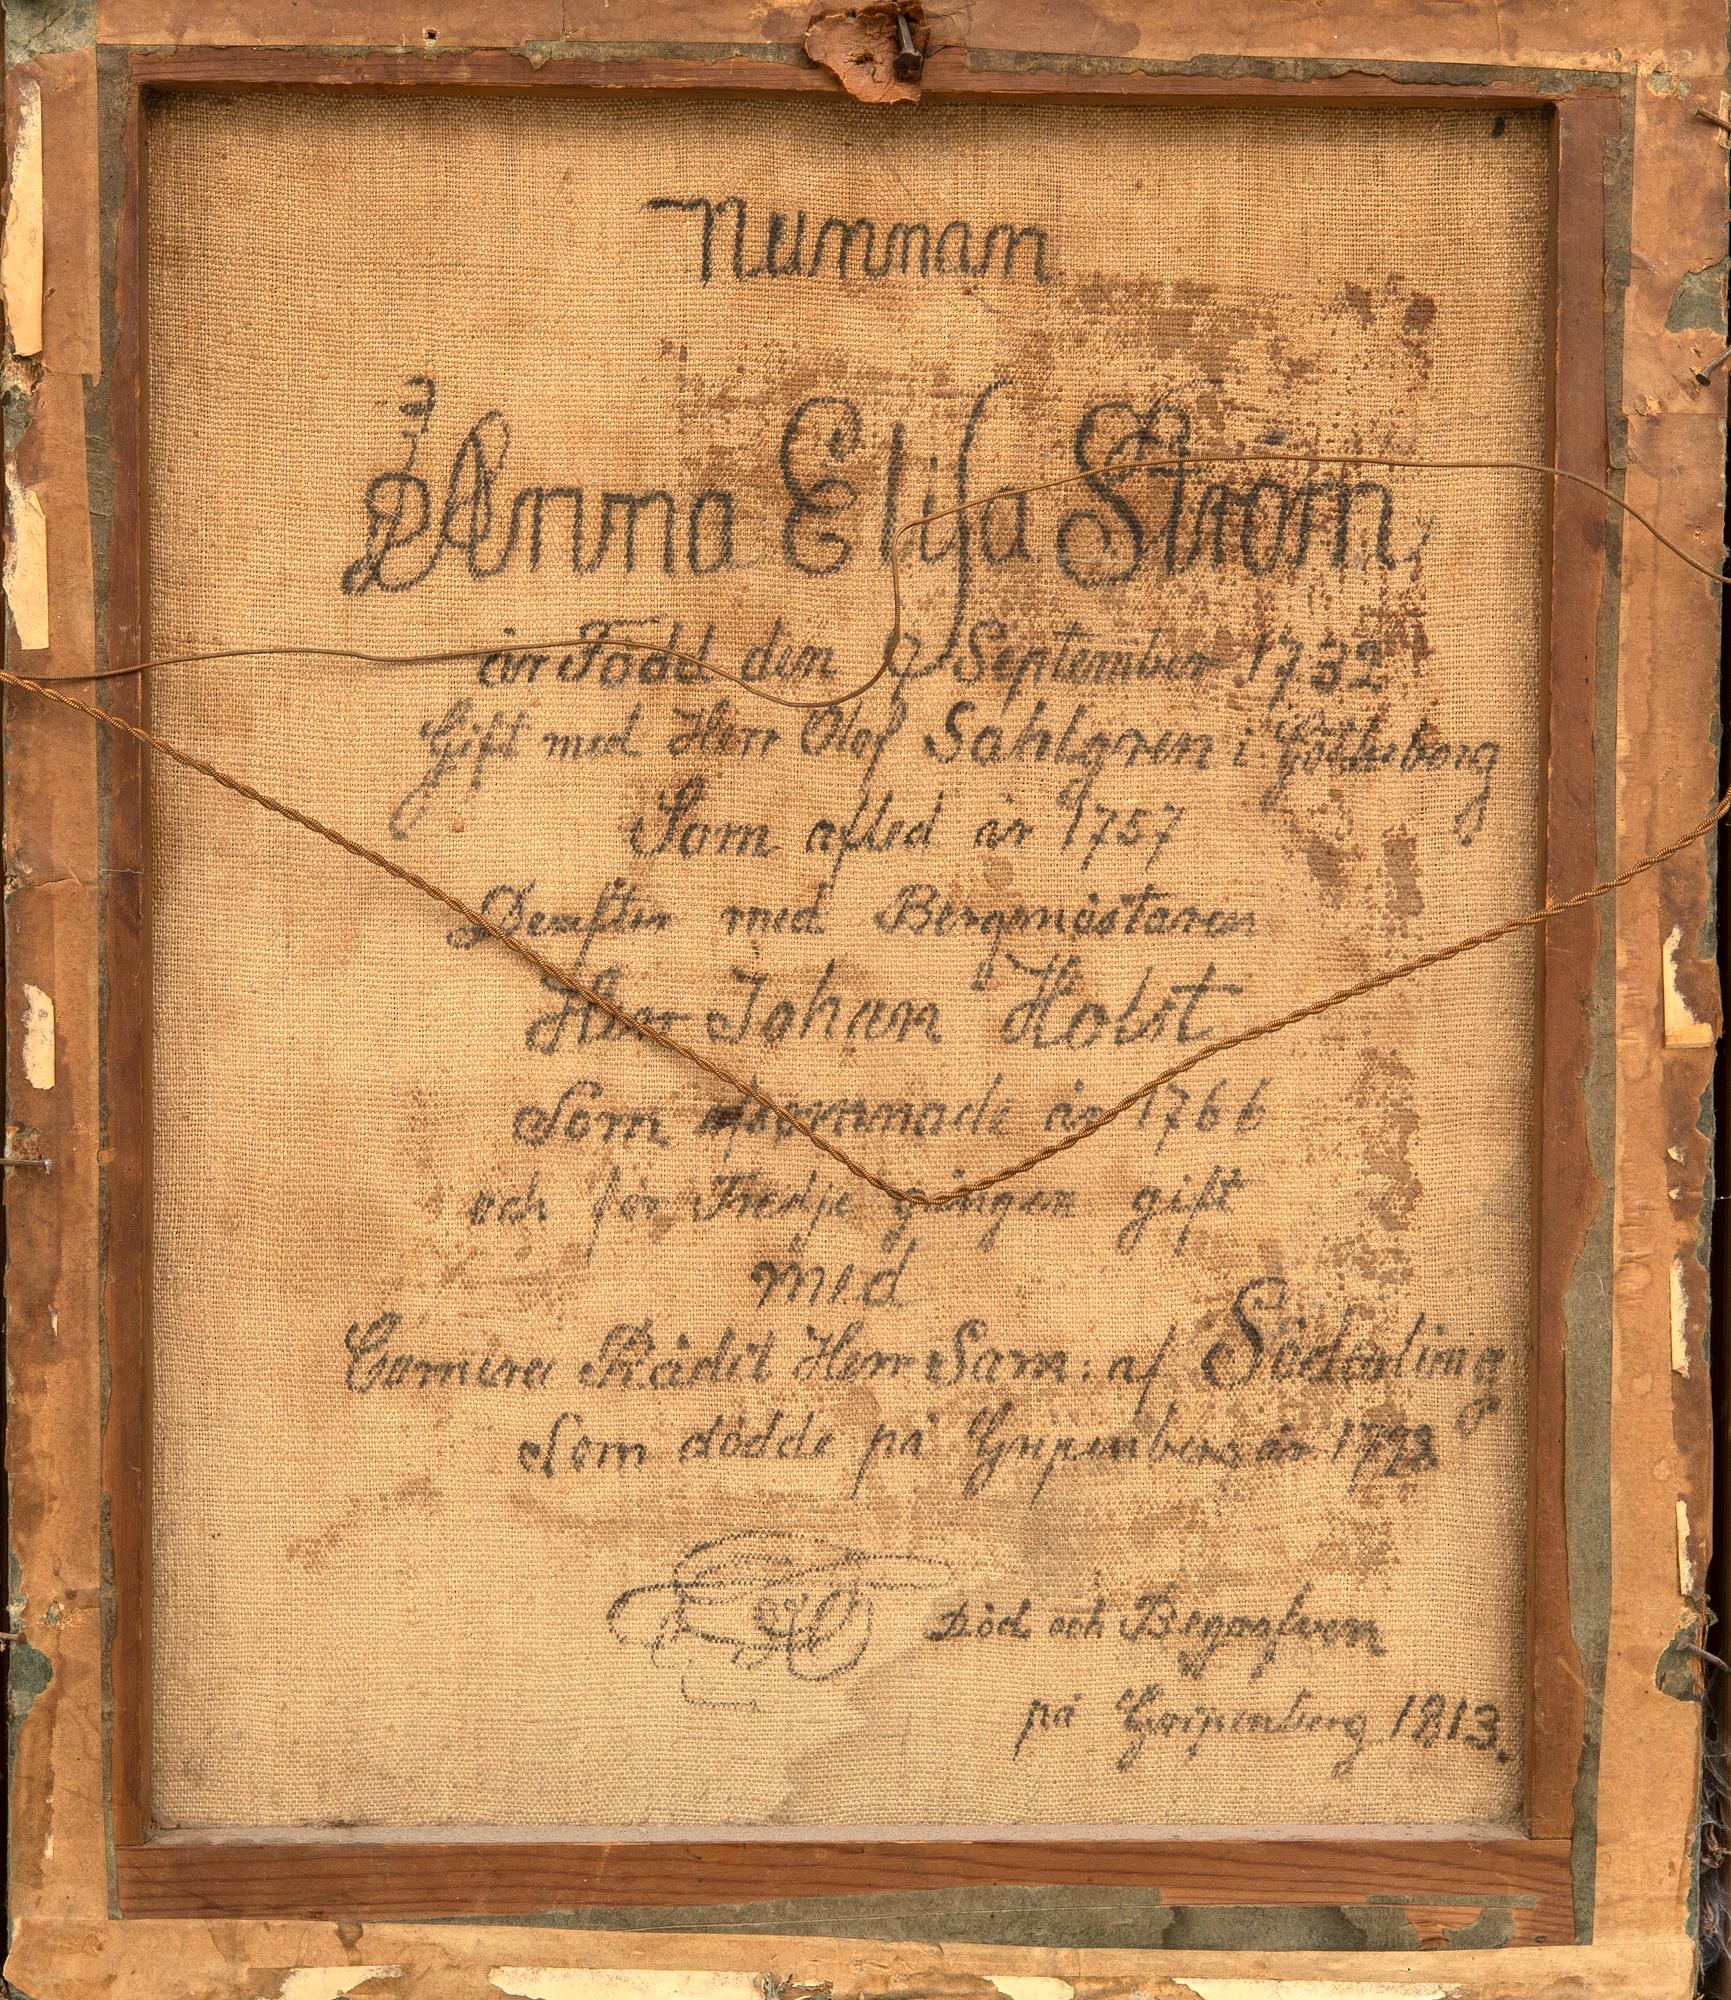 Nunnan
Anna Elisa Ström
är Född den 7 September 1732
Gift med Herr Olof Sahlgren i Götheborg
Som afled år 1757
Derefter med Bergmästaren
Herr Johan Holst
Som afsomnade år 1766
och för Tredje gången gift
med
Camera Rådet Herr Sam: af Söderling
Som dödde på Gripenberg år 1778
Död och Begrafven
på Gripenberg 1813.